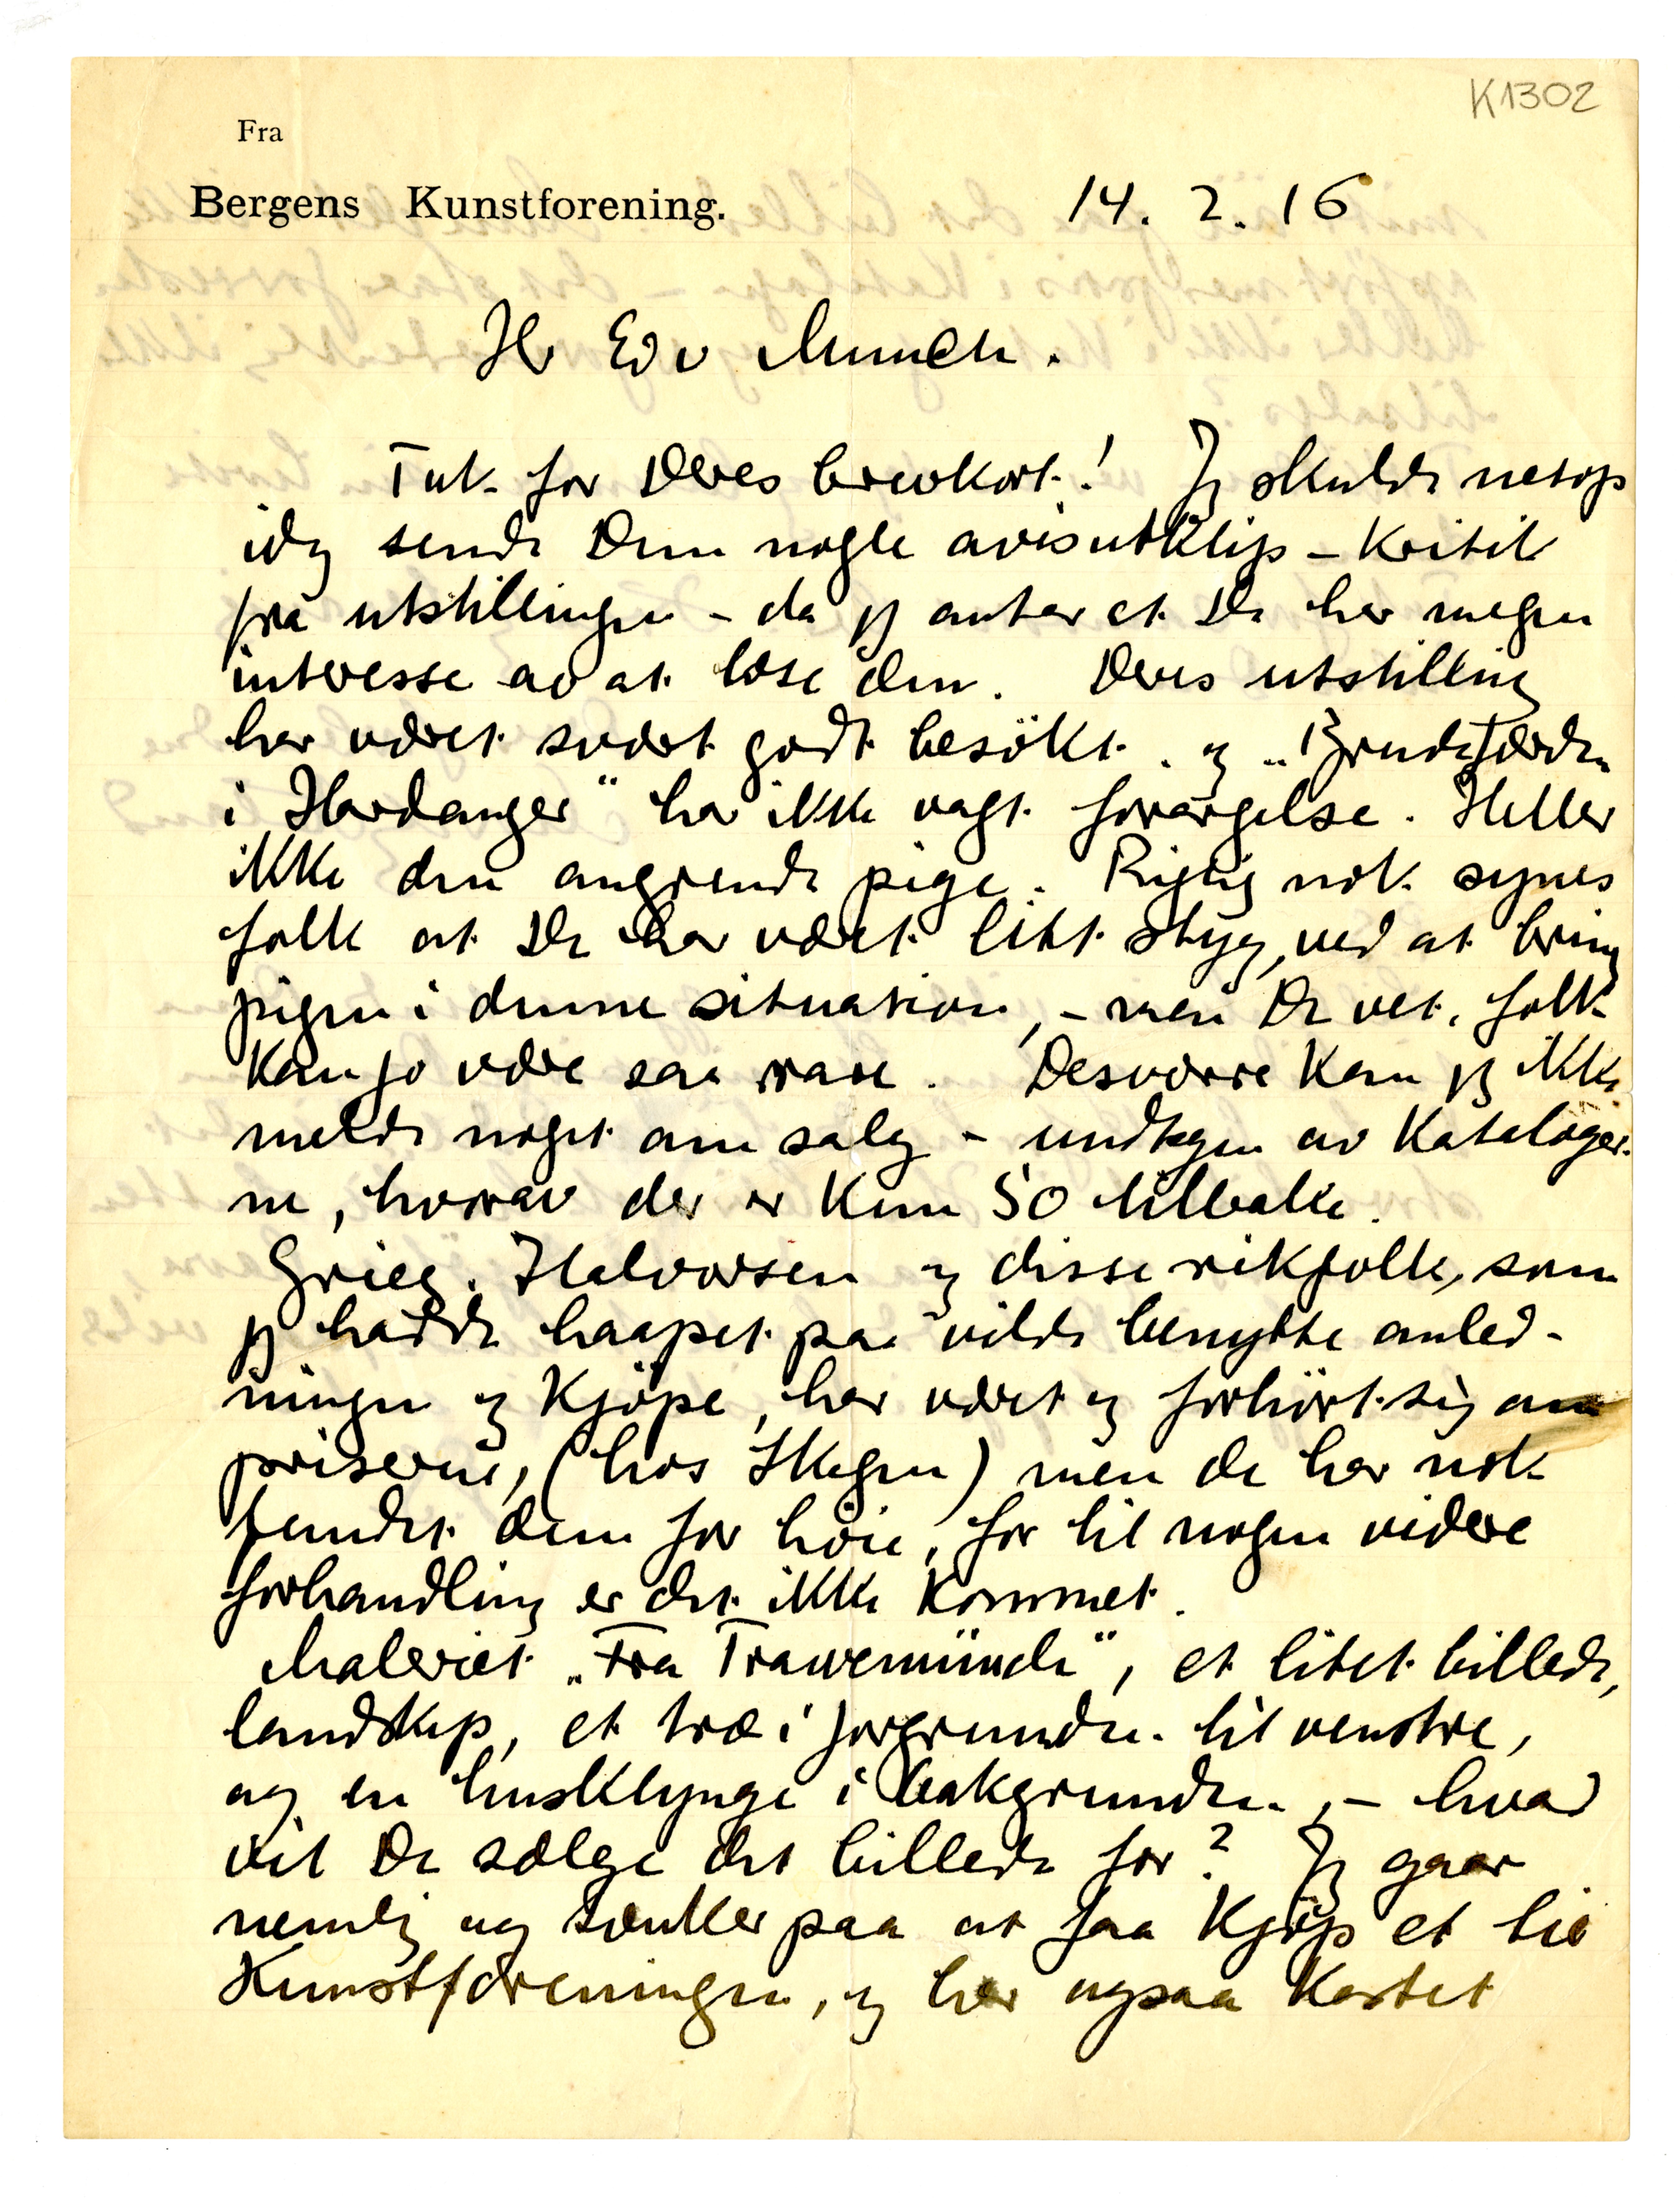 K1302
Fra
Bergens Kunstforening. 14. 2. 16
Hr Edv Munch.
Tak for Deres brevkort! Jeg skulde netop
idag sende Dem nogle avisutklip – Kritik
fra utstillingen – da jeg antar at De har megen
interesse av at læse den. Deres utstilling
har været svært godt besökt. og „Brudefærden
i Hardanger" har ikke vagt forargelse. Heller
ikke den angrende pige. Rigtig nok synes
folk at De har været litt styg, ved at bring
pigen i denne situation, – men De vet, folk
kan jo være saa rare. Desværre kan jeg ikke
melde noget om salg – undtagen av Kataloger-
ne, hvorav der er kun 50 tilbake.
Grieg. Halvorsen og disse rikfolk, som
jeg hadde haapet paa vilde benytte anled-
ningen og kjöpe, har været og forhört sig om
priserne, (hos Skagen) men de har nok
fundet dem for höie, for til nogen videre
forhandling er det ikke kommet.
Maleriet „Fra Trawemünde", et litet billede,
landskap, et træ i forgrunden til venstre,
og en husklynge i bakgrunden, – hvad
vil De sælge det billede for? Jeg gaar
nemlig og tænker paa at faa kjöp et til
Kunstforeningen, og har ogsaa kastet